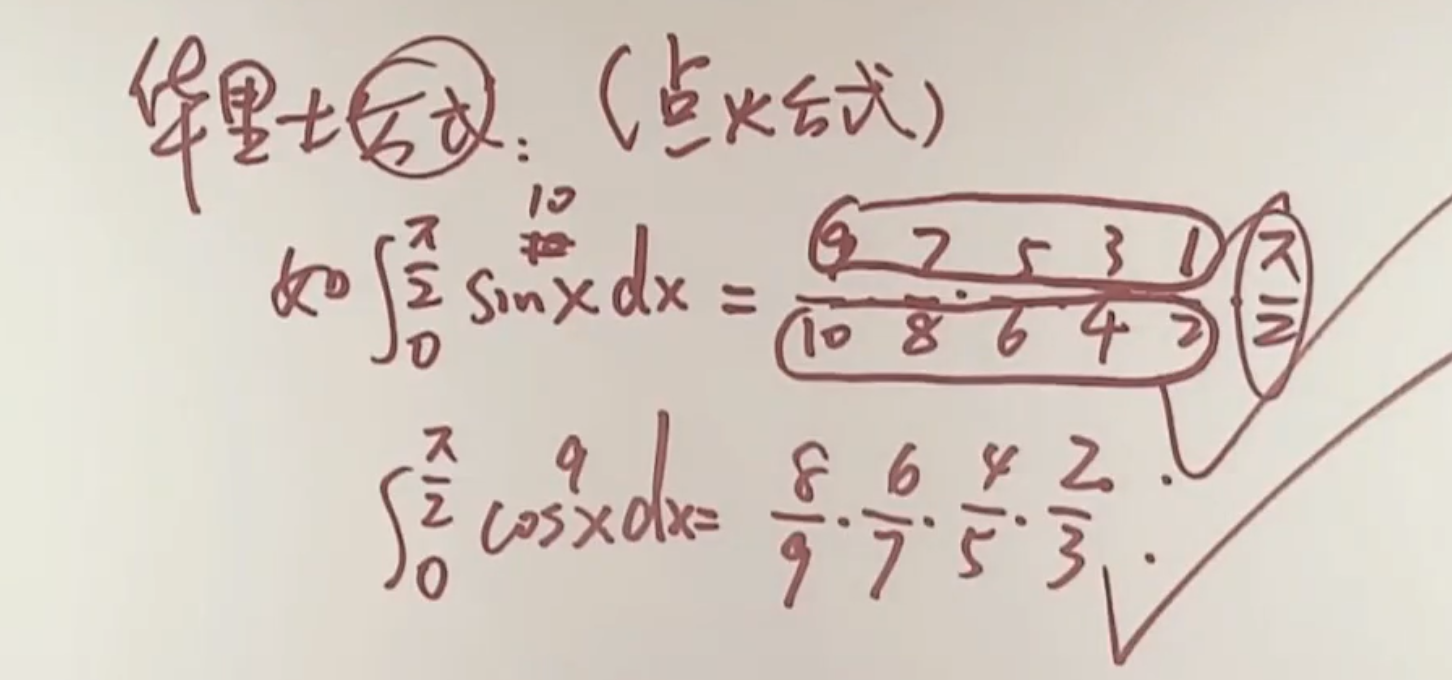 华里士公式:(点火公式)
如 ∫₀^(π/2) sin¹⁰x dx = 9/10 · 7/8 · 5/6 · 3/4 · 1/2 · π/2
∫₀^(π/2) cos⁹x dx = 8/9 · 6/7 · 4/5 · 2/3